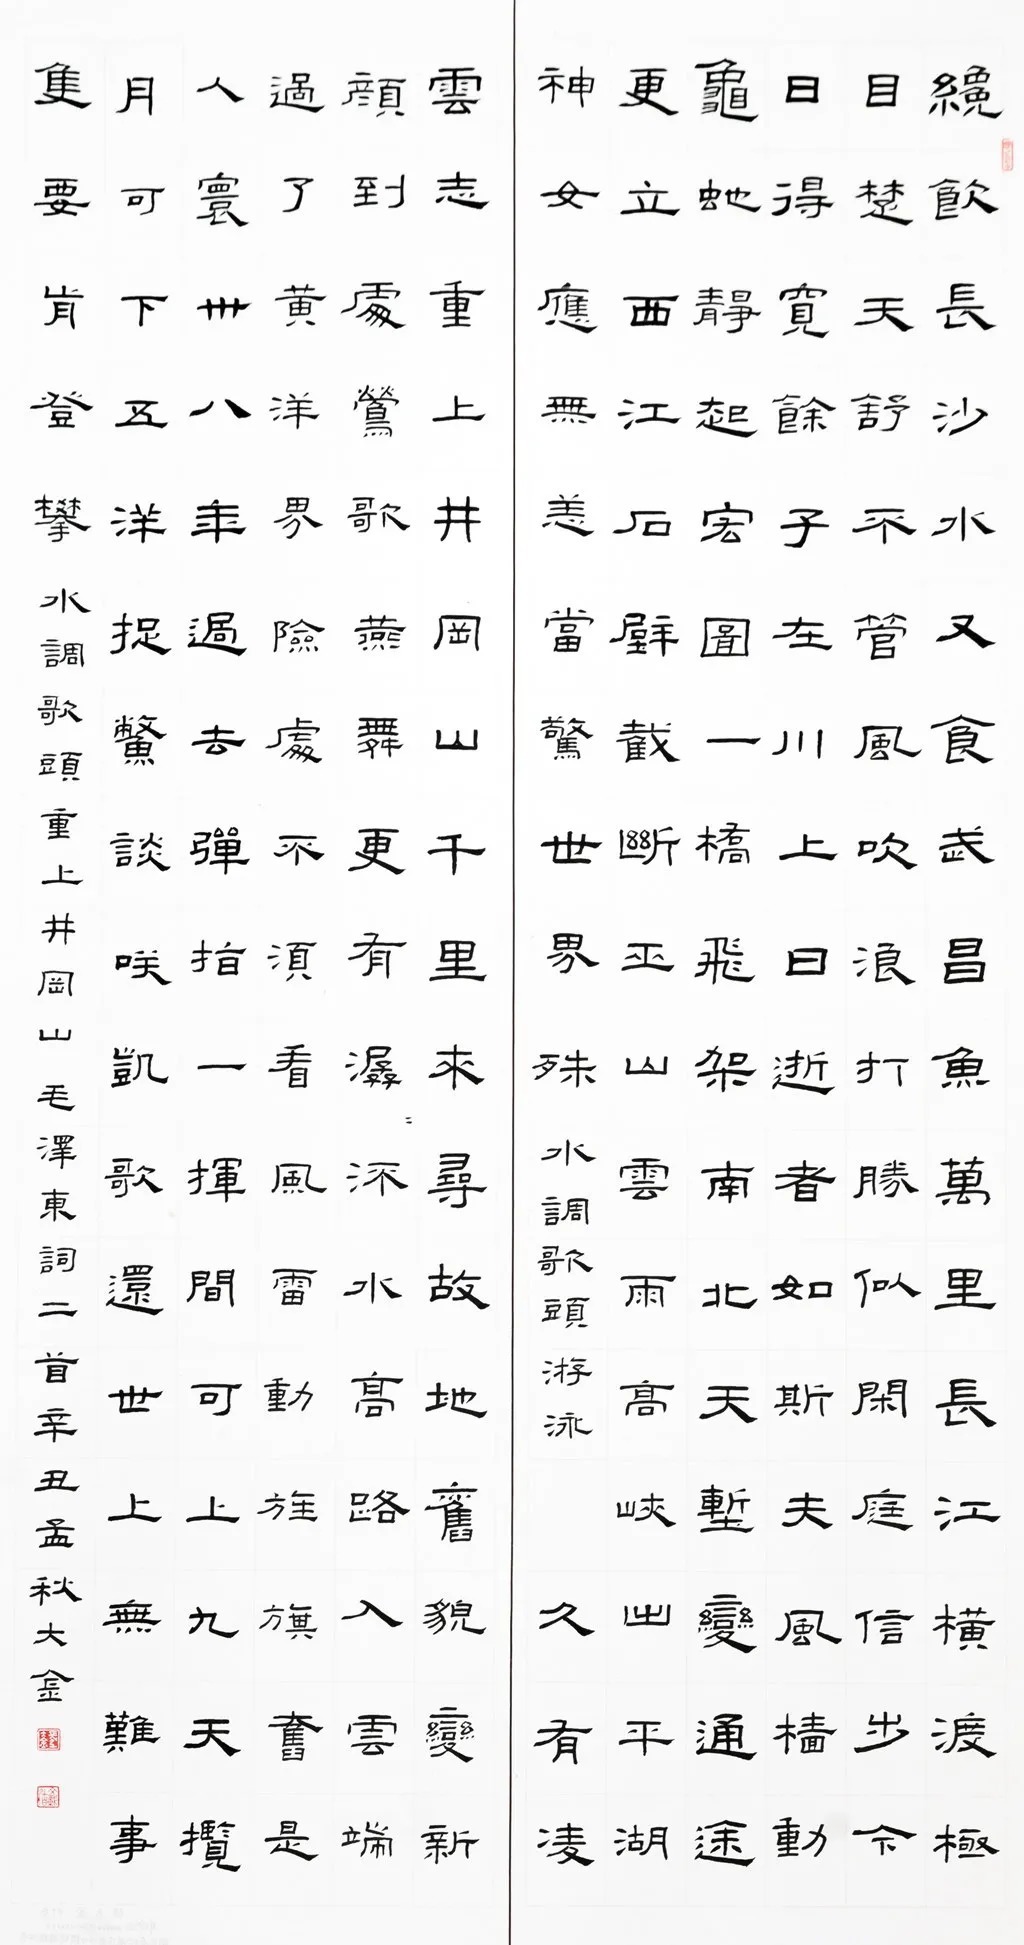 纔飲長沙水又食武昌魚萬里長江橫渡極
目楚天舒不管風吹浪打勝似閑庭信步今
日得寬餘子在川上曰逝者如斯夫風檣動
龜蛇靜起宏圖一橋飛架南北天塹變通途
更立西江石壁截斷巫山雲雨高峽出平湖
神女應無恙當驚世界殊 水調歌頭游泳 久有凌
雲志重上井岡山千里來尋故地舊貌變新
顏到處鶯歌燕舞更有潺〻流水高路入雲端
過了黃洋界險處不須看風雷動旌旗奮是
人寰卅八年過去彈指一揮間可上九天攬
月可下五洋捉鱉談咲凱歌還世上無難事
隻要肯登攀 水調歌頭重上井岡山毛澤東詞二首辛丑孟秋大金